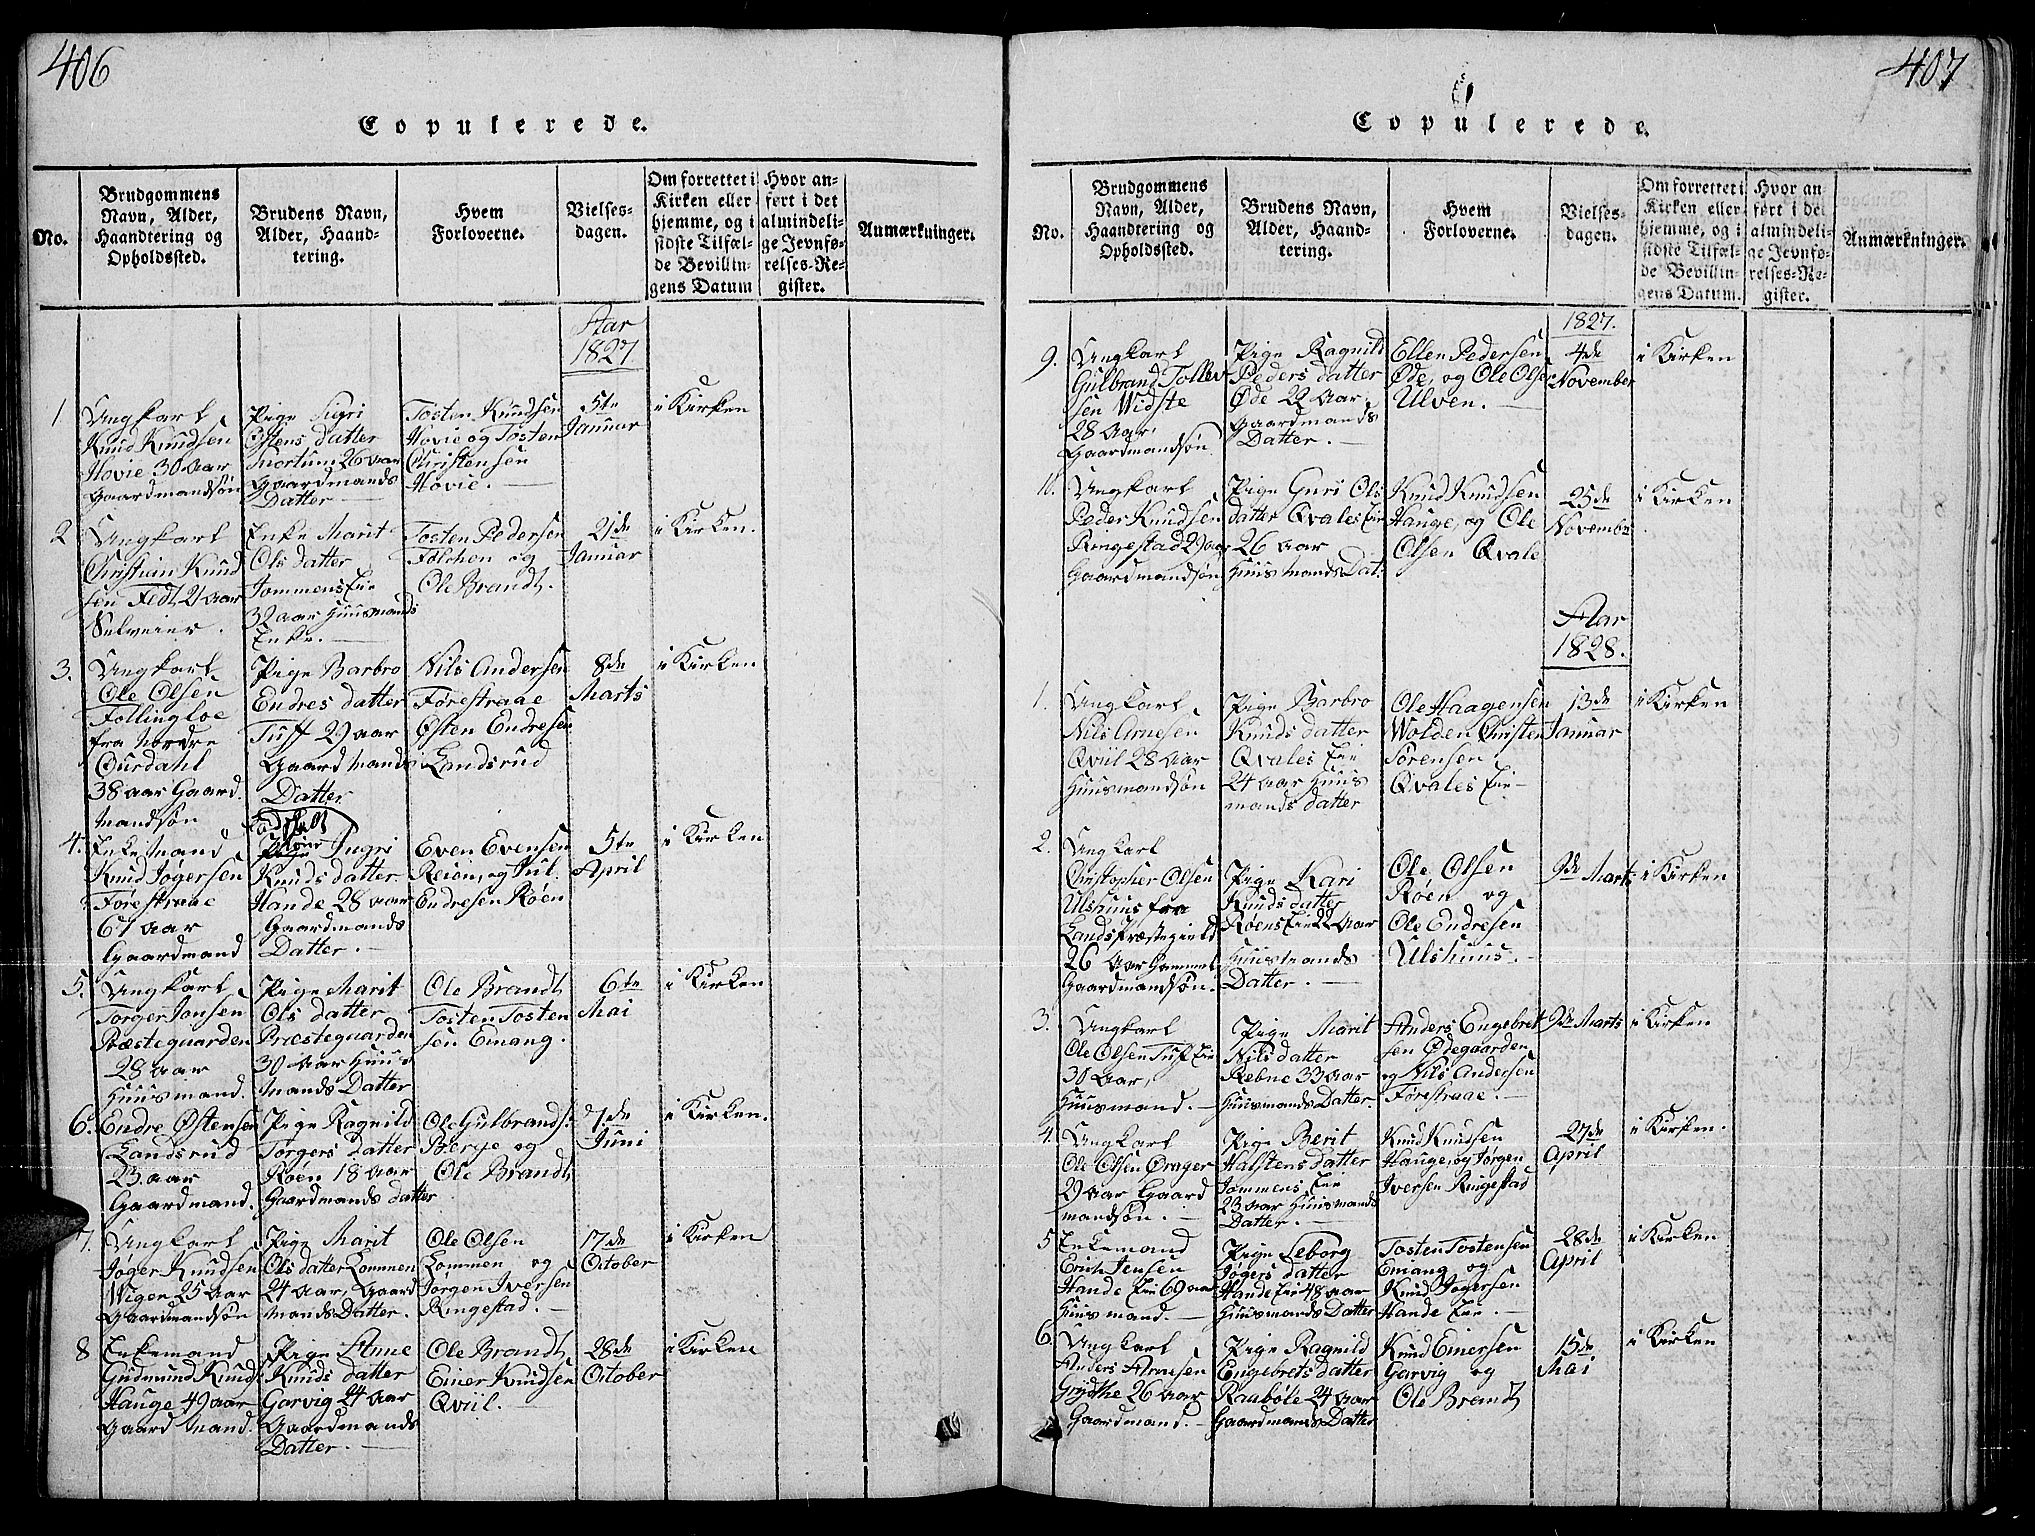 406
Copulerede.
No.
Brudgommens
Navn, Alder,
Haandtering og
Opholdssted.
Brudens Navn,
Alder, Haand-
tering.
Hvem
Forloverne.
Vielses-
dagen.
Om forrettet i
Kirken eller
hjemme, og i
sidste Tilfæl-
de Bevillin-
gens Datum
Hvor an-
ført i det
almindeli-
ge Jevnfø-
relses-Re-
gister.
Anmærkninger.
Aar
1827.
1
Ungkarl
Knud Knudsen
Hovie 30 Aar
Gaardmandsøn
Pige Sigri
Østens datter
26 Aar
Gaardmands
Datter
Tosten Knudsen
Hovie og Tosten
Christensen
Hovie.
5te
Januar
i Kirken
2
Ungkarl
Christian Knud
sen Fedt 21 Aar
Selveier.
Enke Marit
Ols datter
Tommens Eie
32 Aar Huusmands
Enke.
Tosten Pedersen
Følehen og
Ole Brandt.
21de
Januar
i Kirken.
3.
Ungkarl
Ole Olsen
Follingloe
fra Nordre
Ourdahl
38 Aar Gaard
mandsøn
Pige Barbro
Endres datter
Tuff 29 Aar
Gaard Mands
Datter
Nils Andersen
Førestraae
Østen Endresen
Landsrud
8de
Marts
i Kirken
4.
Enke Mand
Knud Jøgersen
Førestraae
67 Aar
Gaardmand
Pige Ingri
Knuds datter
Hande 28 Aar
Gaardmands
Datter.
Even Evensen
Reien, og Jul.
Endresen Røen
5te
April
i Kirken
5.
Ungkarl
Torger Jonsen
Præsteguarden
28 Aar
Huusmand.
Pige Marit
Ols datter
Præsteguarden
30 Aar Huus
Mands Datter
Ole Brandt
Tosten Tosten
sen Emang.
6te
Mai
i Kirken
6.
Endre Østensen
Landsrud
23 Aar
Gaardmand.
Pige Ragnild
Torgers datter
Røen 18 Aar
Gaardmands datter
Ole Gulbrands:
Berge og
Ole Brandt
7de
Juni
i Kirken.
7.
Ungkarl
Jøger Knudsen
Wigen 25 Aar
Gaardmandsøn
Pige Marit
Ols datter Lommen
24 Aar, Gaard
Mands Datter.
Ole Olsen
Lommen og
Jørgen Iversen
Ringestad.
17de
October
i Kirken
8
Enkemand
Gudmund Knuds
Hauge 49 Aar
Gaard Mand.
Pige Anne
Knuds datter
Garvig 24 Aar
Gaardmands
Datter.
Ole Brandt
Einer Knudsen
Qviil.
28de
October
i Kirken
407
Copulerede.
No.
Brudgommens
Navn, Alder,
Haandtering og
Opholdssted.
Brudens Navn,
Alder, Haand-
tering.
Hvem
Forloverne.
Vielses-
dagen.
Om forrettet i
Kirken eller
hjemme, og i
sidste Tilfæl-
de Bevillin-
gens Datum.
Hvor an-
ført i det
almindeli-
ge Jevnfø-
relses-Re-
gister.
Anmærkninger.
1827.
9.
Ungkarl
Gulbrand Tollev
sen Widste
28 Aar
Gaardmandsøn
Pige Ragnild
Peders datter
Øde 22 Aar
Gaardmands
Datter.
Ellen Pedersen
Øde, og Ole Olsen
Ulven.
4de
November
i Kirken
10.
Ungkarl
Peder Knudsen
Ringestad 29 Aar
Gaardmandsøn
Pige Guri Ols
datter Qvales Eie
26 Aar
Huusmands Dat.
Knud Knudsen
Hauge, og Ole
Olsen Qvale
25de
November
i Kirken
Aar
1828.
1.
Ungkarl
Nils Arnesen
Qviil 28 Aar
Huusmandsøn
Pige Barbro
Knuds datter
Qvales Eie
24 Aar Huus
mands datter
Ole Haagensen
Wolden Christen
Sørensen
Qvales Eie
13de
Januar
i Kirken
2.
Ungkarl
Christopher Olsen
Ulshuus fra
Lands Præstegield
26 Aar Gammel
Gaardmandsøn.
Pige Kari
Knuds datter
Røens Eie 22 Aar
Huusmands
Datter.
Ole Olsen
Røen og
Ole Endresen
Ulshuus.
9de Marts
i Kirken
3.
Ungkarl
Ole Olsen Tuff Eie
30 Aar,
Huusmand.
Pige Marit
Nils datter
Rebne 33 Aar
Huusmands Datter.
Anders Engebret
sen Ødegaarden
og Nils Andersen
Førestraae.
9de Marts
i Kirken
4.
Ungkarl
Ole Olsen Drager
29 Aar Gaard
mandsøn.
Pige Berit
Halstens datter
Tommens Eie
23 Aar Huusmands
Datter.
Knud Knudsen
Hauge, og Jørgen
Iversen Ringestad
27de
April
i Kirken.
5
Enkemand
Erich Jensen
Hande Eie 69 Aar
Huusmand.
Pige Leborg
Jøgers datter
Hande Eie 48 Aar
Huusmands Datter
Tosten Tostensen
Emang og
Knud Jøgersen
Hande Eie.
28de
April
i Kirken
6.
Ungkarl
Anders Arnesen
Grydthe 26 Aar
Gaardmand.
Pige Ragnild
Engebrets datter
Raabøle 24 Aar
Gaardmands Datter
Knud Einersen
Garvig og
Ole Brandt
15de
Mai
i Kirken